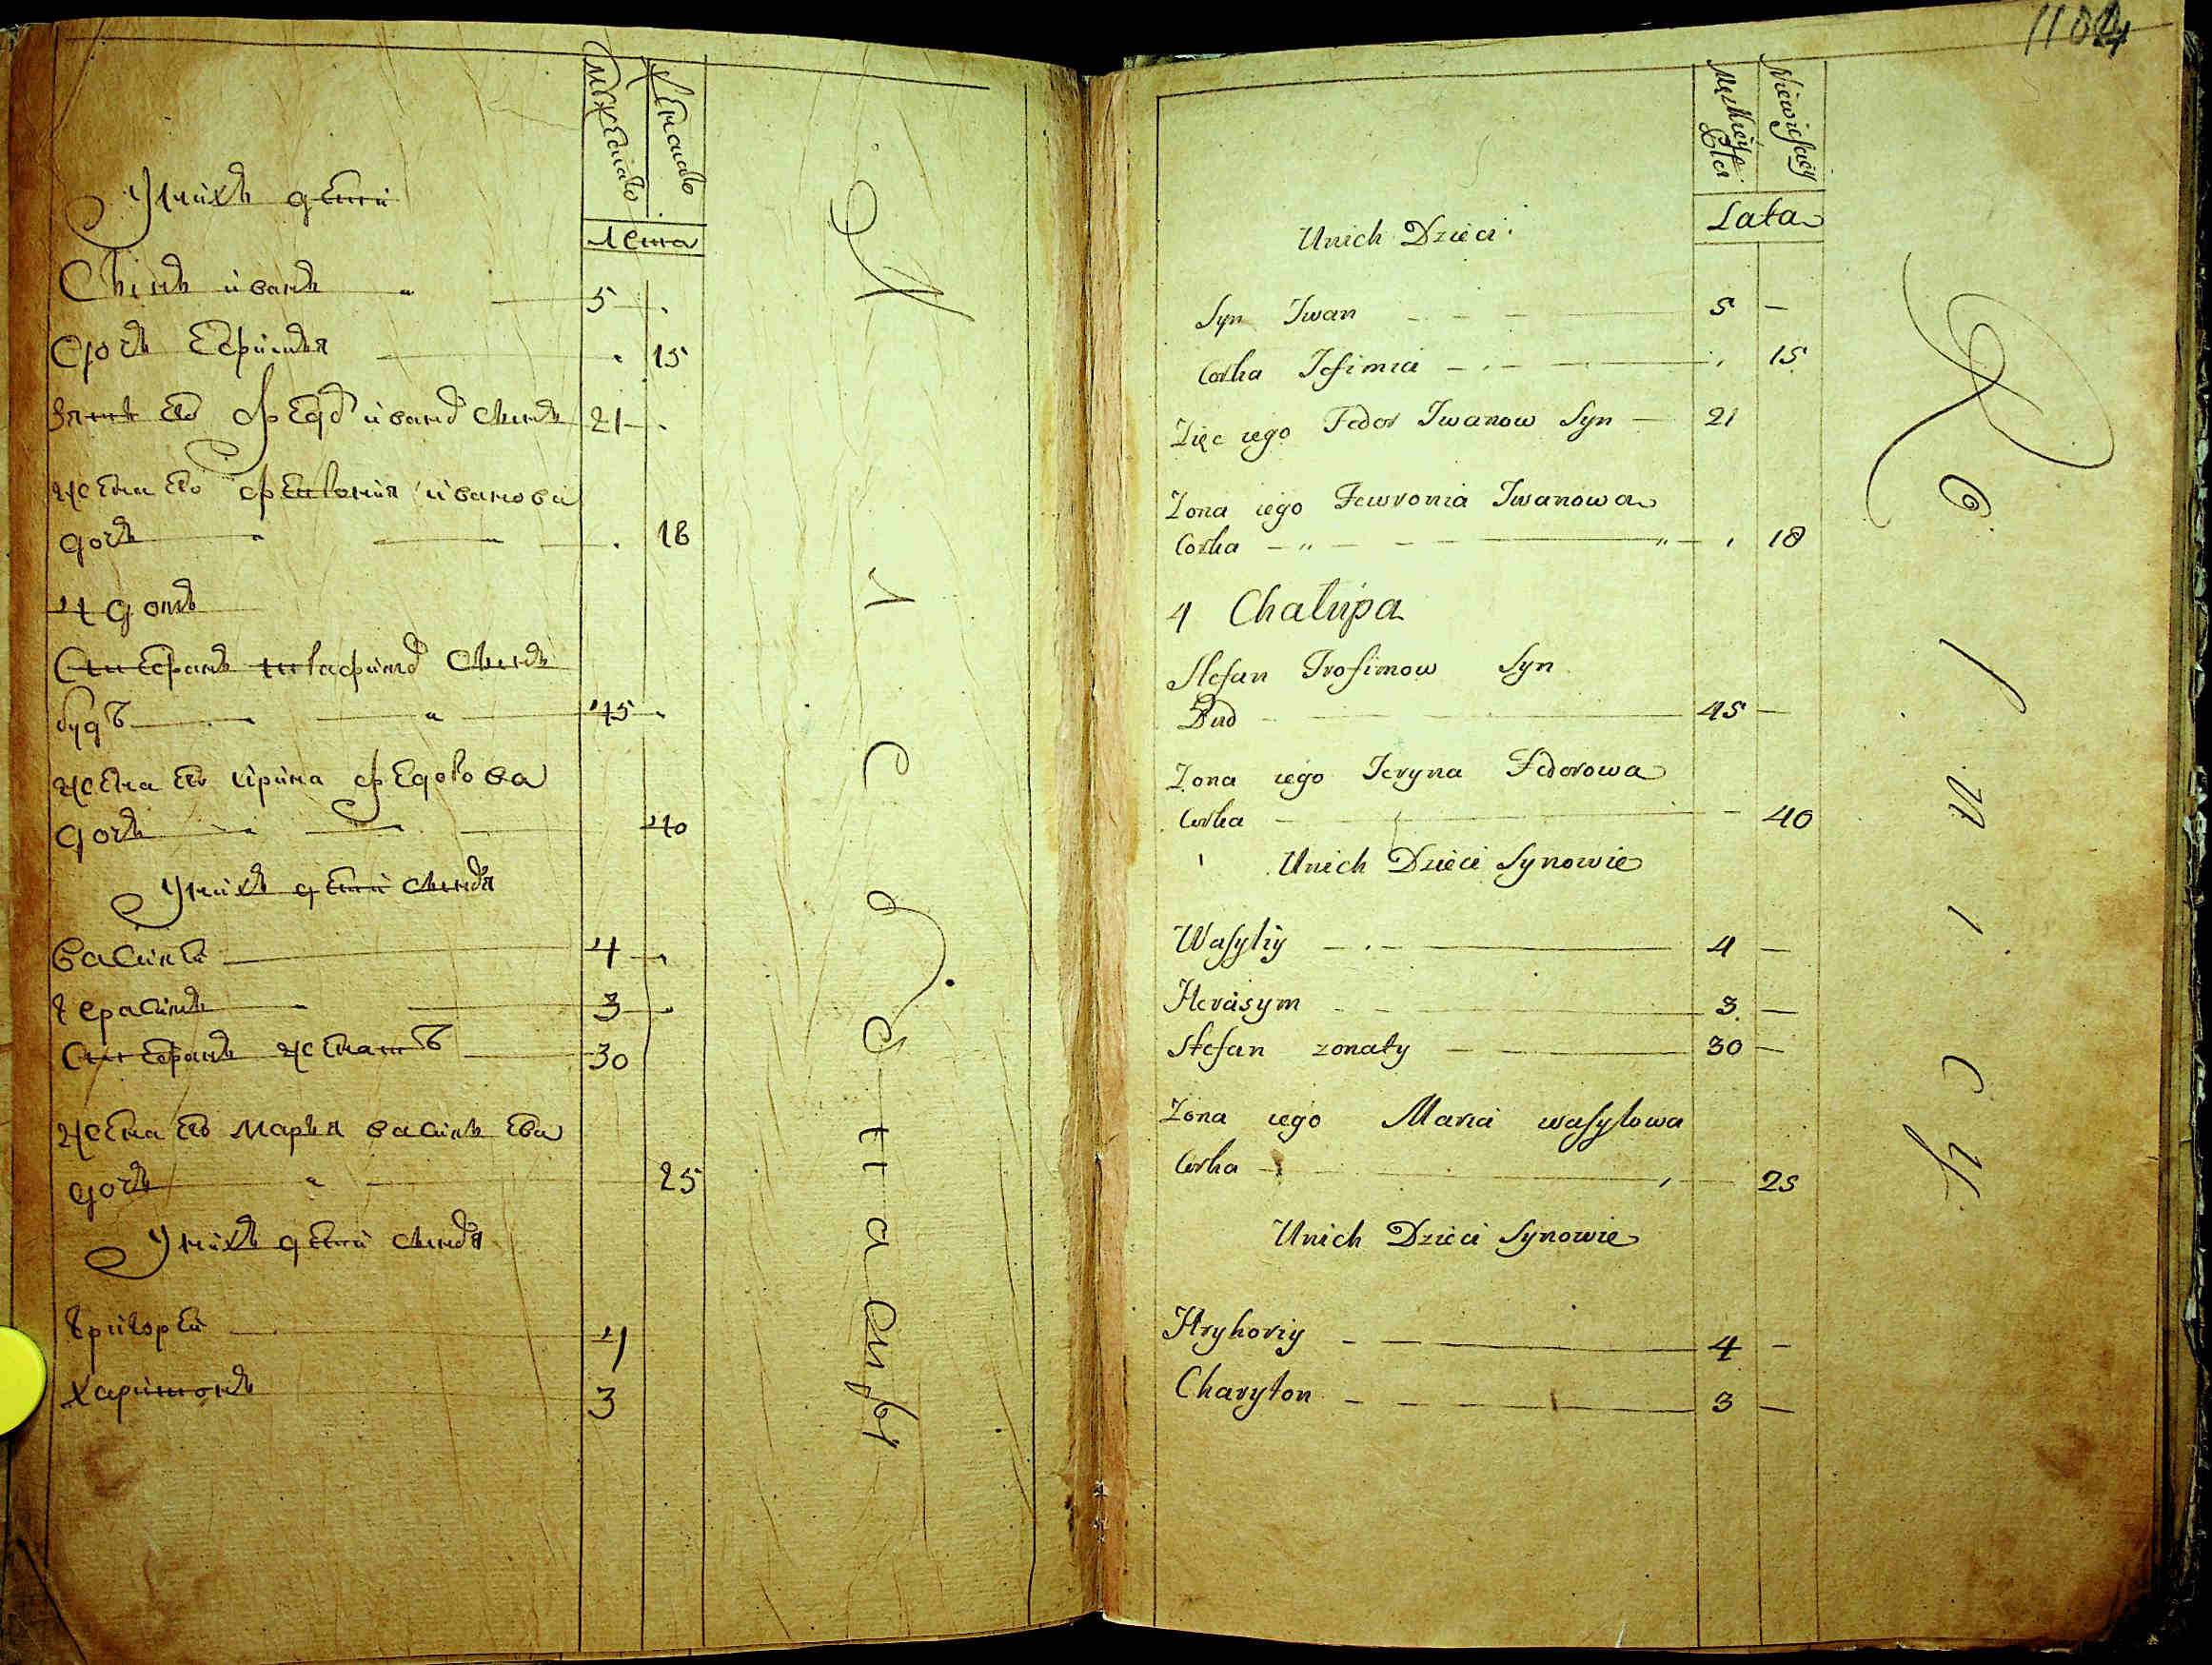 Мужеска
Женска
лета
У них детей
Сын Иван 5
Дочь Ефимья 15
Зять его Федор Иванов сын 21
жена его Феврония Иванова
дочь 18
4 дом
Стефан Трафимов сын
Дуд 45
жена его Ирина Федорова
дочь 40
У них детей сыновья
Василей 4
Герасим 3
Стефан женат 30
жена его Марья Васильева
дочь 25
У них детей сыновья
Григорей 4
Харитон 3
1104
Męzkiey
Płci
Niewiesciey
Lata
Unich Dzieci
Syn Iwan 5
Corka Iefimia 15
Zięc iego Fedor Iwanow Syn 21
Zona iego Fewronia Iwanowa
Corka 18
4 Chałupa
Stefan Trofimow Syn
Dud 45
Zona iego Ieryna Fedorowa
Corka 40
Unich Dzieci Synowie
Wasyliy 4
Herasym 3
Stefan zonaty 30
Zona iego Maria wasylowa
Corka 25
Unich Dzieci Synowie
Hryhoriy 4
Charyton 3